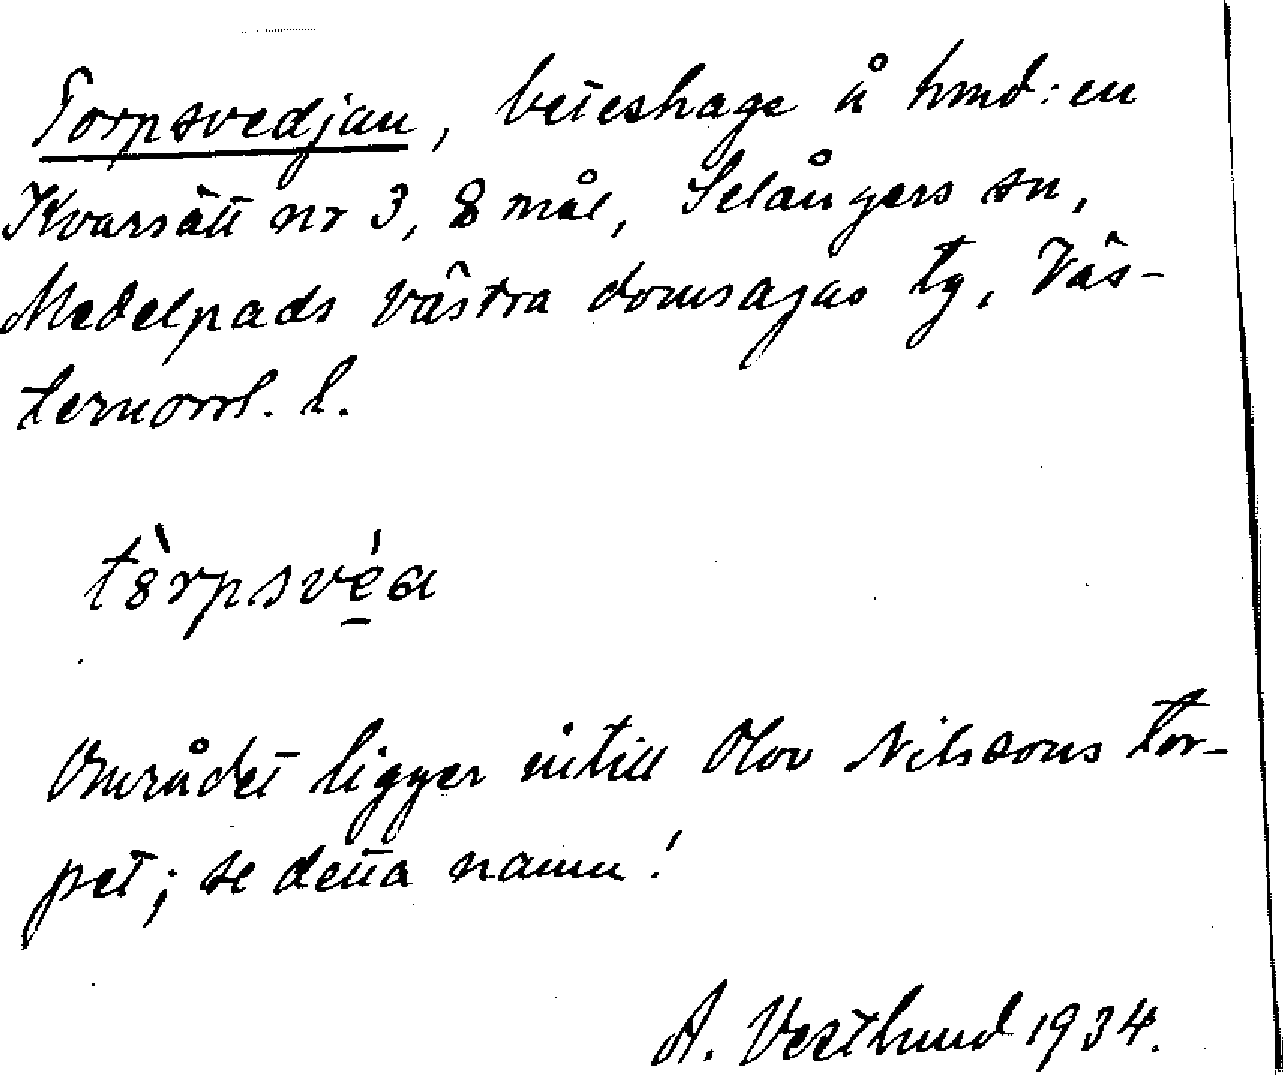 Torpsvedjan, beteshage å hmd:en
Kvarsätt nr 3, 8 mål, Selångers sn,
Medelpads västra domsagas tg, Väs-
ternorrl. l.
tòrpsvéa
Området ligger intill Olov Nilssons tor-
pet; se detta namn!
A. Vestlund 1934.